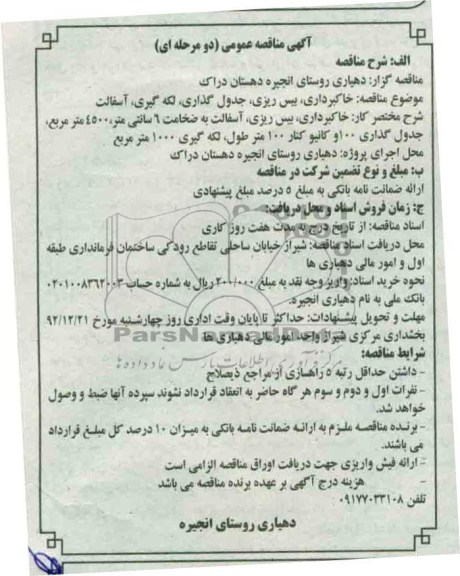 آگهی مناقصه عمومی (دو مرحله ای)
الف: شرح مناقصه
مناقصه گزار: دهیاری روستای انجیره دهستان دراک
موضوع مناقصه: خاکبرداری، بیس ریزی، جدول گذاری، لکه گیری، آسفالت
شرح مختصر کار: خاکبرداری، بیس ریزی، آسفالت به ضخامت ۶ سانتی متر، ۴۵۰۰ متر مربع،
جدول گذاری ۱۰۰ و کانیو کنار ۱۰۰ متر طول، لکه گیری ۱۰۰۰ متر مربع
محل اجرای پروژه: دهیاری روستای انجیره دهستان دراک
ب: مبلغ و نوع تضمین شرکت در مناقصه
ارائه ضمانت نامه بانکی به مبلغ ۵ درصد مبلغ پیشنهادی
ج: زمان فروش اسناد و محل دریافت:
اسناد مناقصه: از تاریخ درج به مدت هفت روز کاری
محل دریافت اسناد مناقصه: شیراز خیابان ساحلی تقاطع رودکی ساختمان فرمانداری طبقه
اول و امور مالی دهیاری ها
نحوه خرید اسناد: واریز وجه نقد به مبلغ ۲۰۰/۰۰۰ ریال به شماره حساب ۰۲۰۱۰۰۸۳۶۲۰۰۳
بانک ملی به نام دهیاری انجیره.
مهلت و تحویل پیشنهادات: حداکثر تا پایان وقت اداری روز چهارشنبه مورخ ۹۲/۱۲/۲۱
بخشداری مرکزی شیراز واحد امور مالی دهیاری ها
شرایط مناقصه:
- داشتن حداقل رتبه ۵ راهسازی از مراجع ذیصلاح
- نفرات اول و دوم و سوم هر گاه حاضر به انعقاد قرارداد نشوند سپرده آنها ضبط و وصول
خواهد شد.
- برنده مناقصه ملزم به ارائه ضمانت نامه بانکی به میزان ۱۰ درصد کل مبلغ قرارداد
می باشند.
- ارائه فیش واریزی جهت دریافت اوراق مناقصه الزامی است
- هزینه درج آگهی بر عهده برنده مناقصه می باشد
تلفن ۰۹۱۷۷۰۳۳۱۰۸
دهیاری روستای انجیره